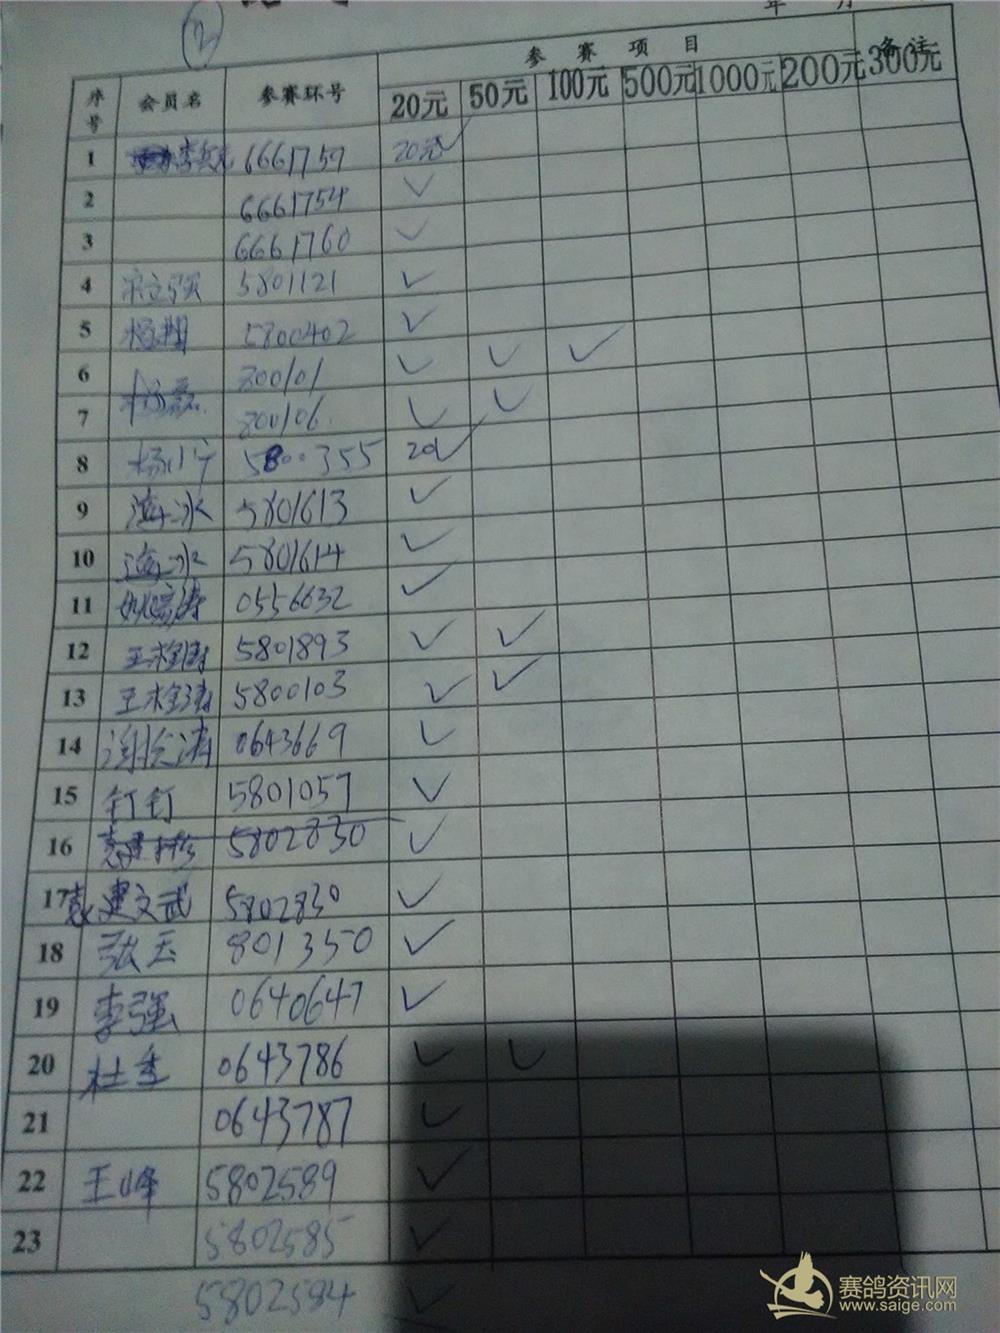 2
年 月
序号 会员名 参赛环号 参赛项目 备注
20元 50元 100元 500元 1000元 200元 300元
1 6661759 20元 ✓
2 6661754 ✓
3 6661760 ✓
4 宋立强 5801121 ✓
5 杨翔 5800402 ✓
6 200101 ✓ ✓ ✓
7 杨磊 200106 ✓ ✓
8 5800355 20 ✓
9 5801613 ✓
10 5801614 ✓
11 0556632 ✓
12 5801893 ✓ ✓
13 5800103 ✓ ✓
14 0643669 ✓
15 钉钉 5801057 ✓
16 5802830 ✓
17 袁建文武 5802830 ✓
18 张玉 801350 ✓
19 李强 0640647 ✓
20 杜季 0643786 ✓ ✓
21 0643787 ✓
22 王峰 5802589 ✓
23 5802585 ✓
5802584 ✓
赛鸽资讯网
www.saige.com